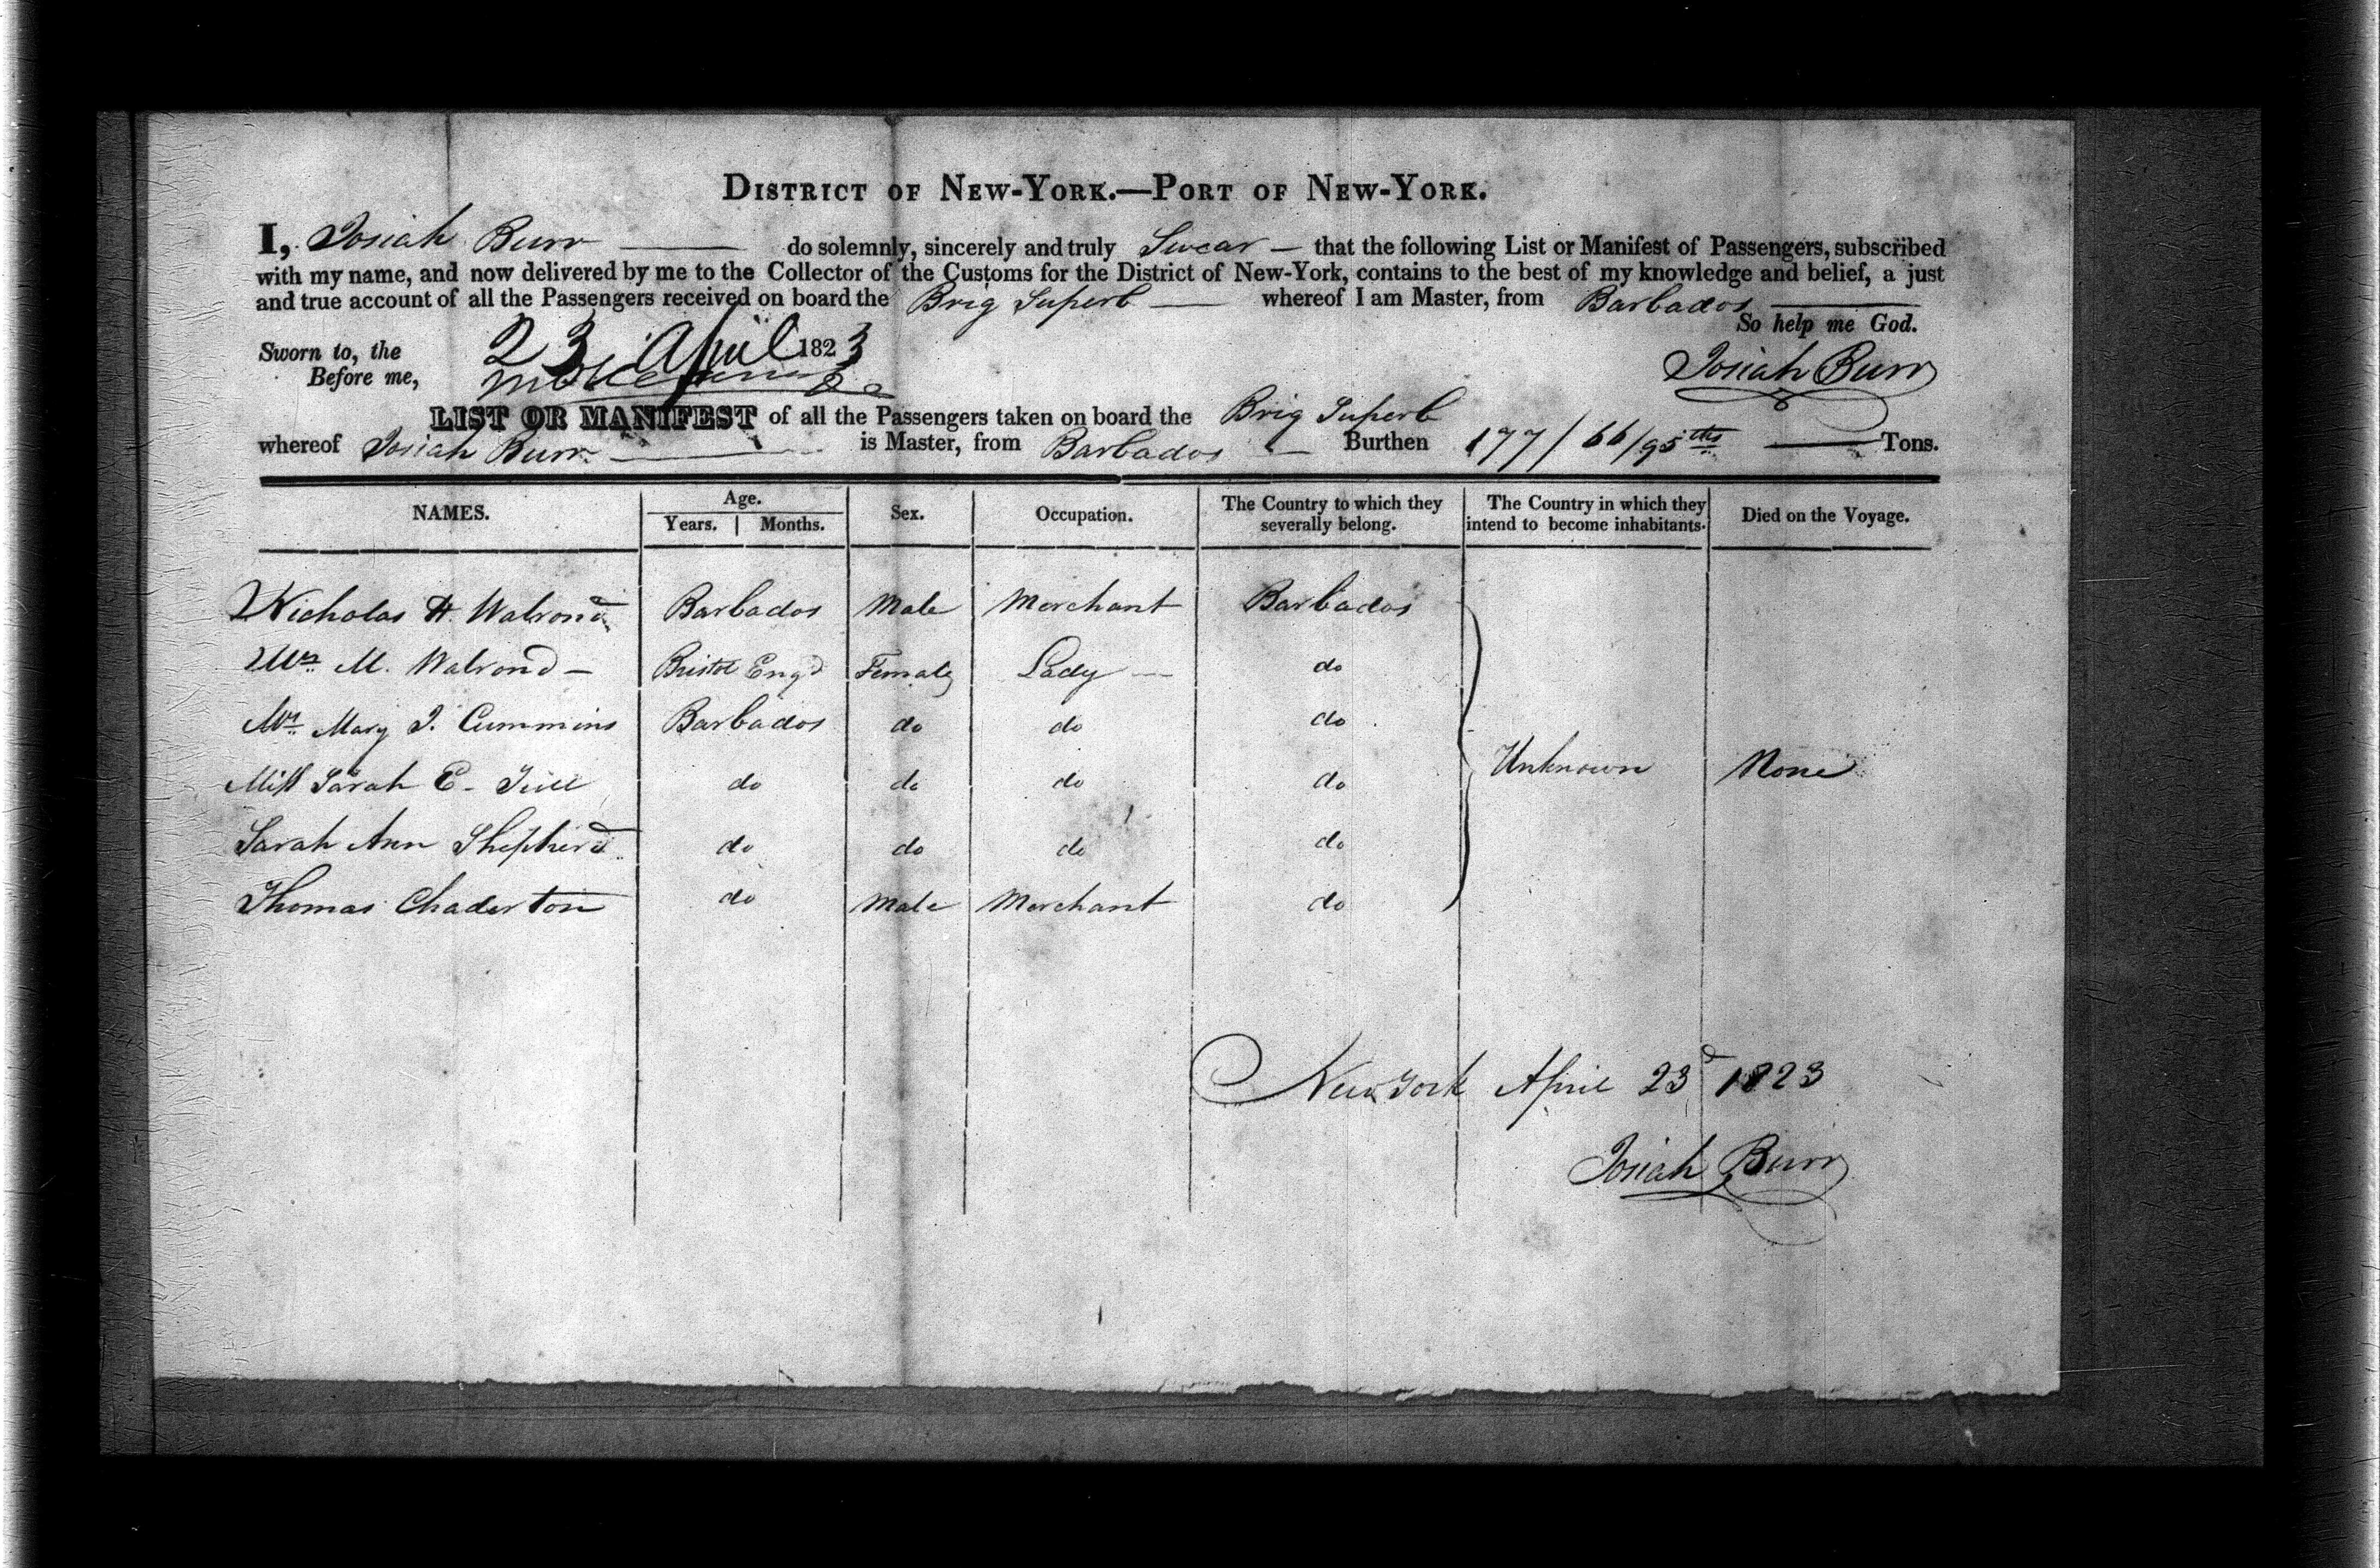 DISTRICT OF NEW-YORK.—PORT OF NEW-YORK.
I, Josiah Burr do solemnly, sincerely and truly Swear — that the following List or Manifest of Passengers, subscribed
with my name, and now delivered by me to the Collector of the Customs for the District of New-York, contains to the best of my knowledge and belief, a just
and true account of all the Passengers received on board the Brig Superb — whereof I am Master, from Barbados
So help me God.
Sworn to, the 23 April 1823
Josiah Burr
Before me,
LIST OR MANIFEST of all the Passengers taken on board the Brig Superb
whereof Josiah Burr is Master, from Barbados — Burthen 177/66/95ths Tons.
NAMES. Age. Years. Months. Sex. Occupation. The Country to which they severally belong. The Country in which they intend to become inhabitants. Died on the Voyage.
Nicholas H. Walrond Barbados Male Merchant Barbados
Mrs M. Walrond — Bristol Engd Female Lady — do
Mrs Mary J. Cummins Barbados do do do
Miss Sarah E. do do do do Unknown None
Sarah Ann Shepherd do do do do
Thomas Chaderton do Male Merchant do
New York April 23d 1823
Josiah Burr